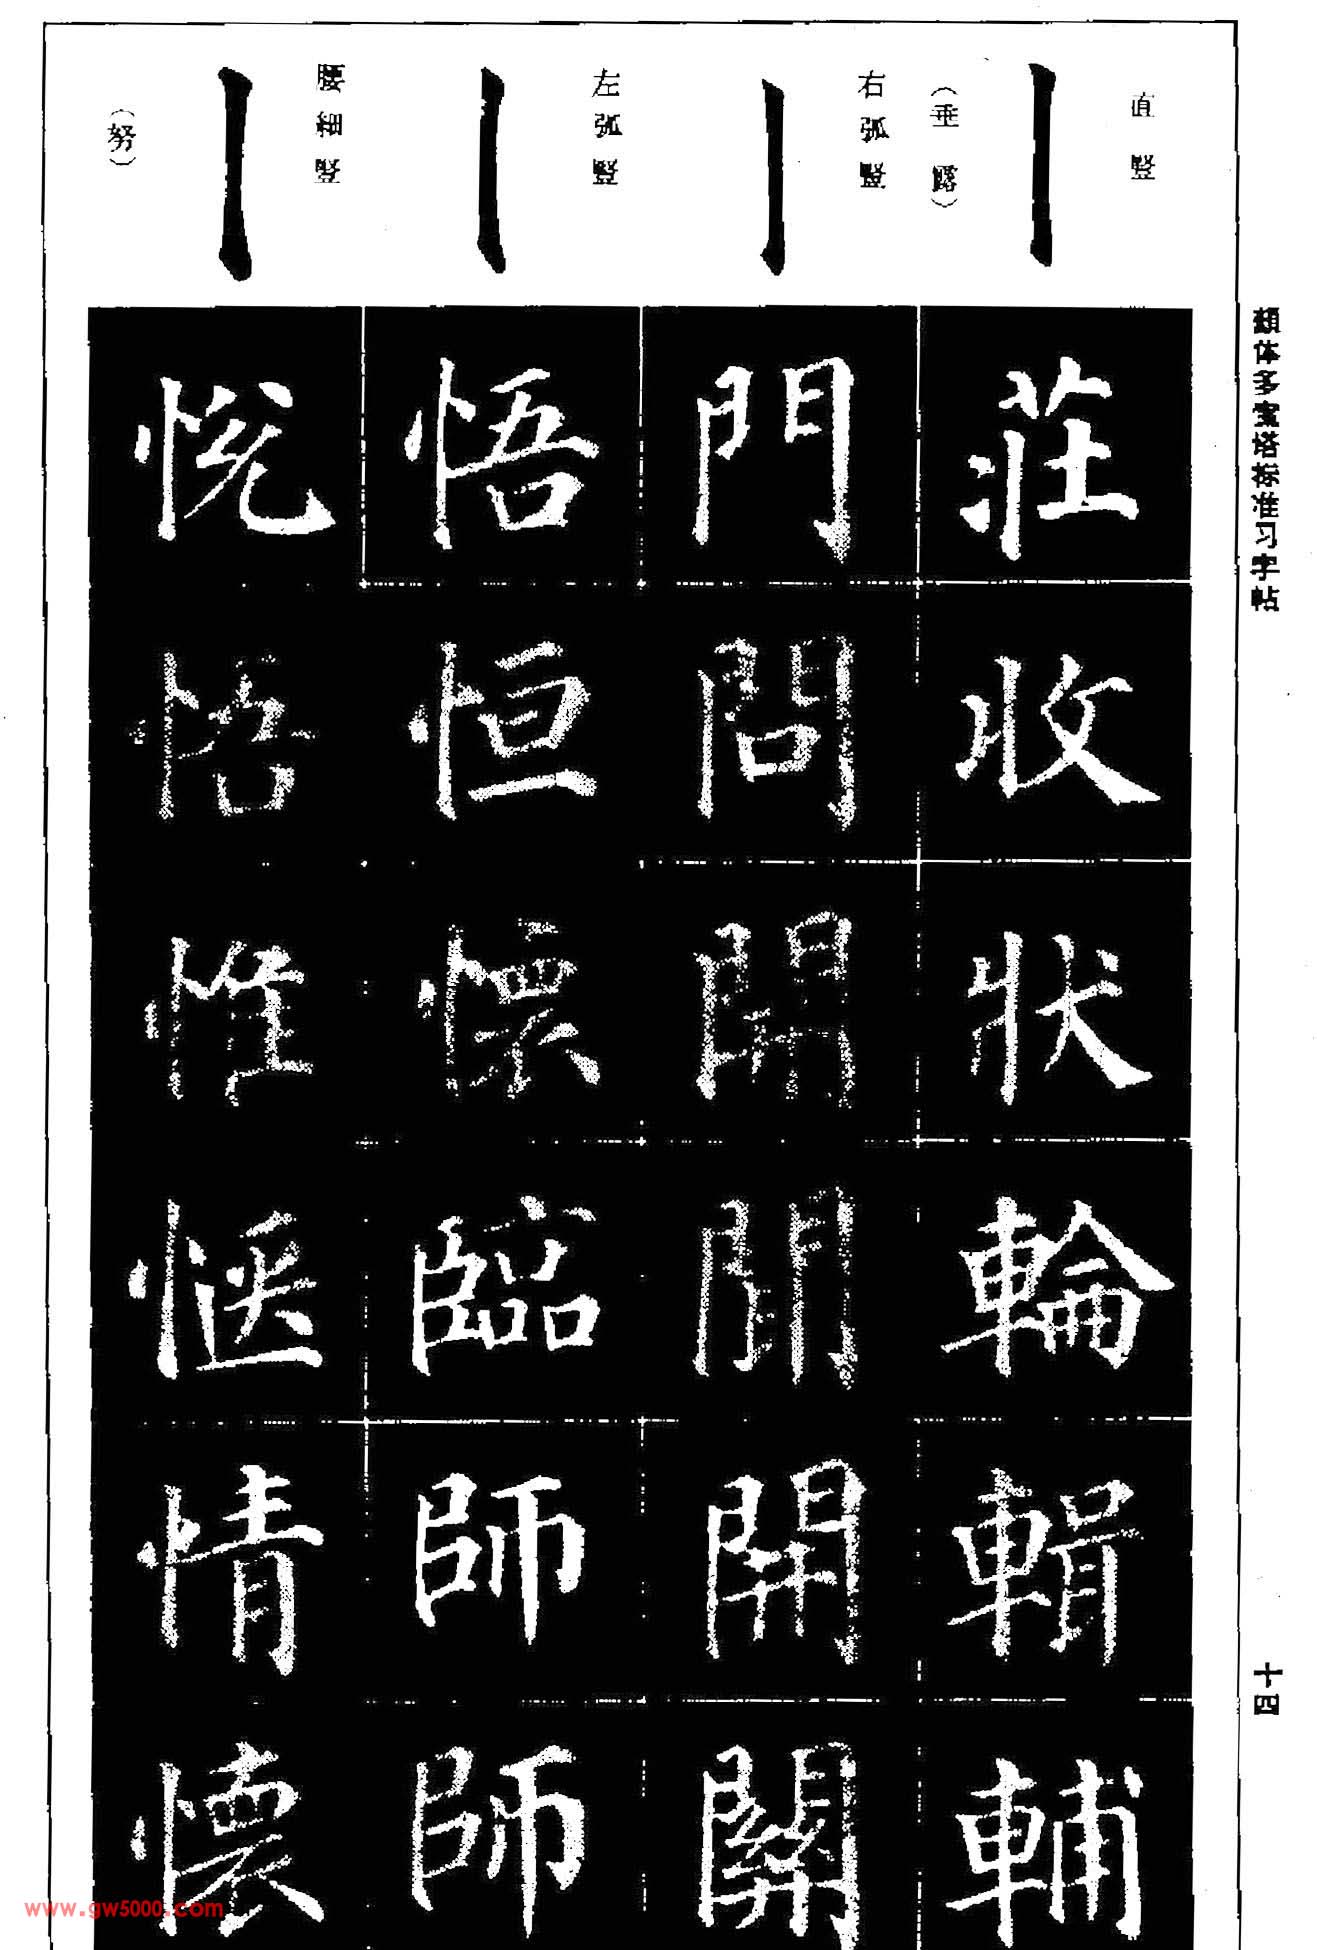 顏体多宝塔标准习字帖
十四
直竖
（垂露）
莊收狀輪輯輔
右弧竖
門問開間開關
左弧竖
悟恒懷臨師師
腰细竖
（努）
悦悟惟愜情懷
www.gw5000.com